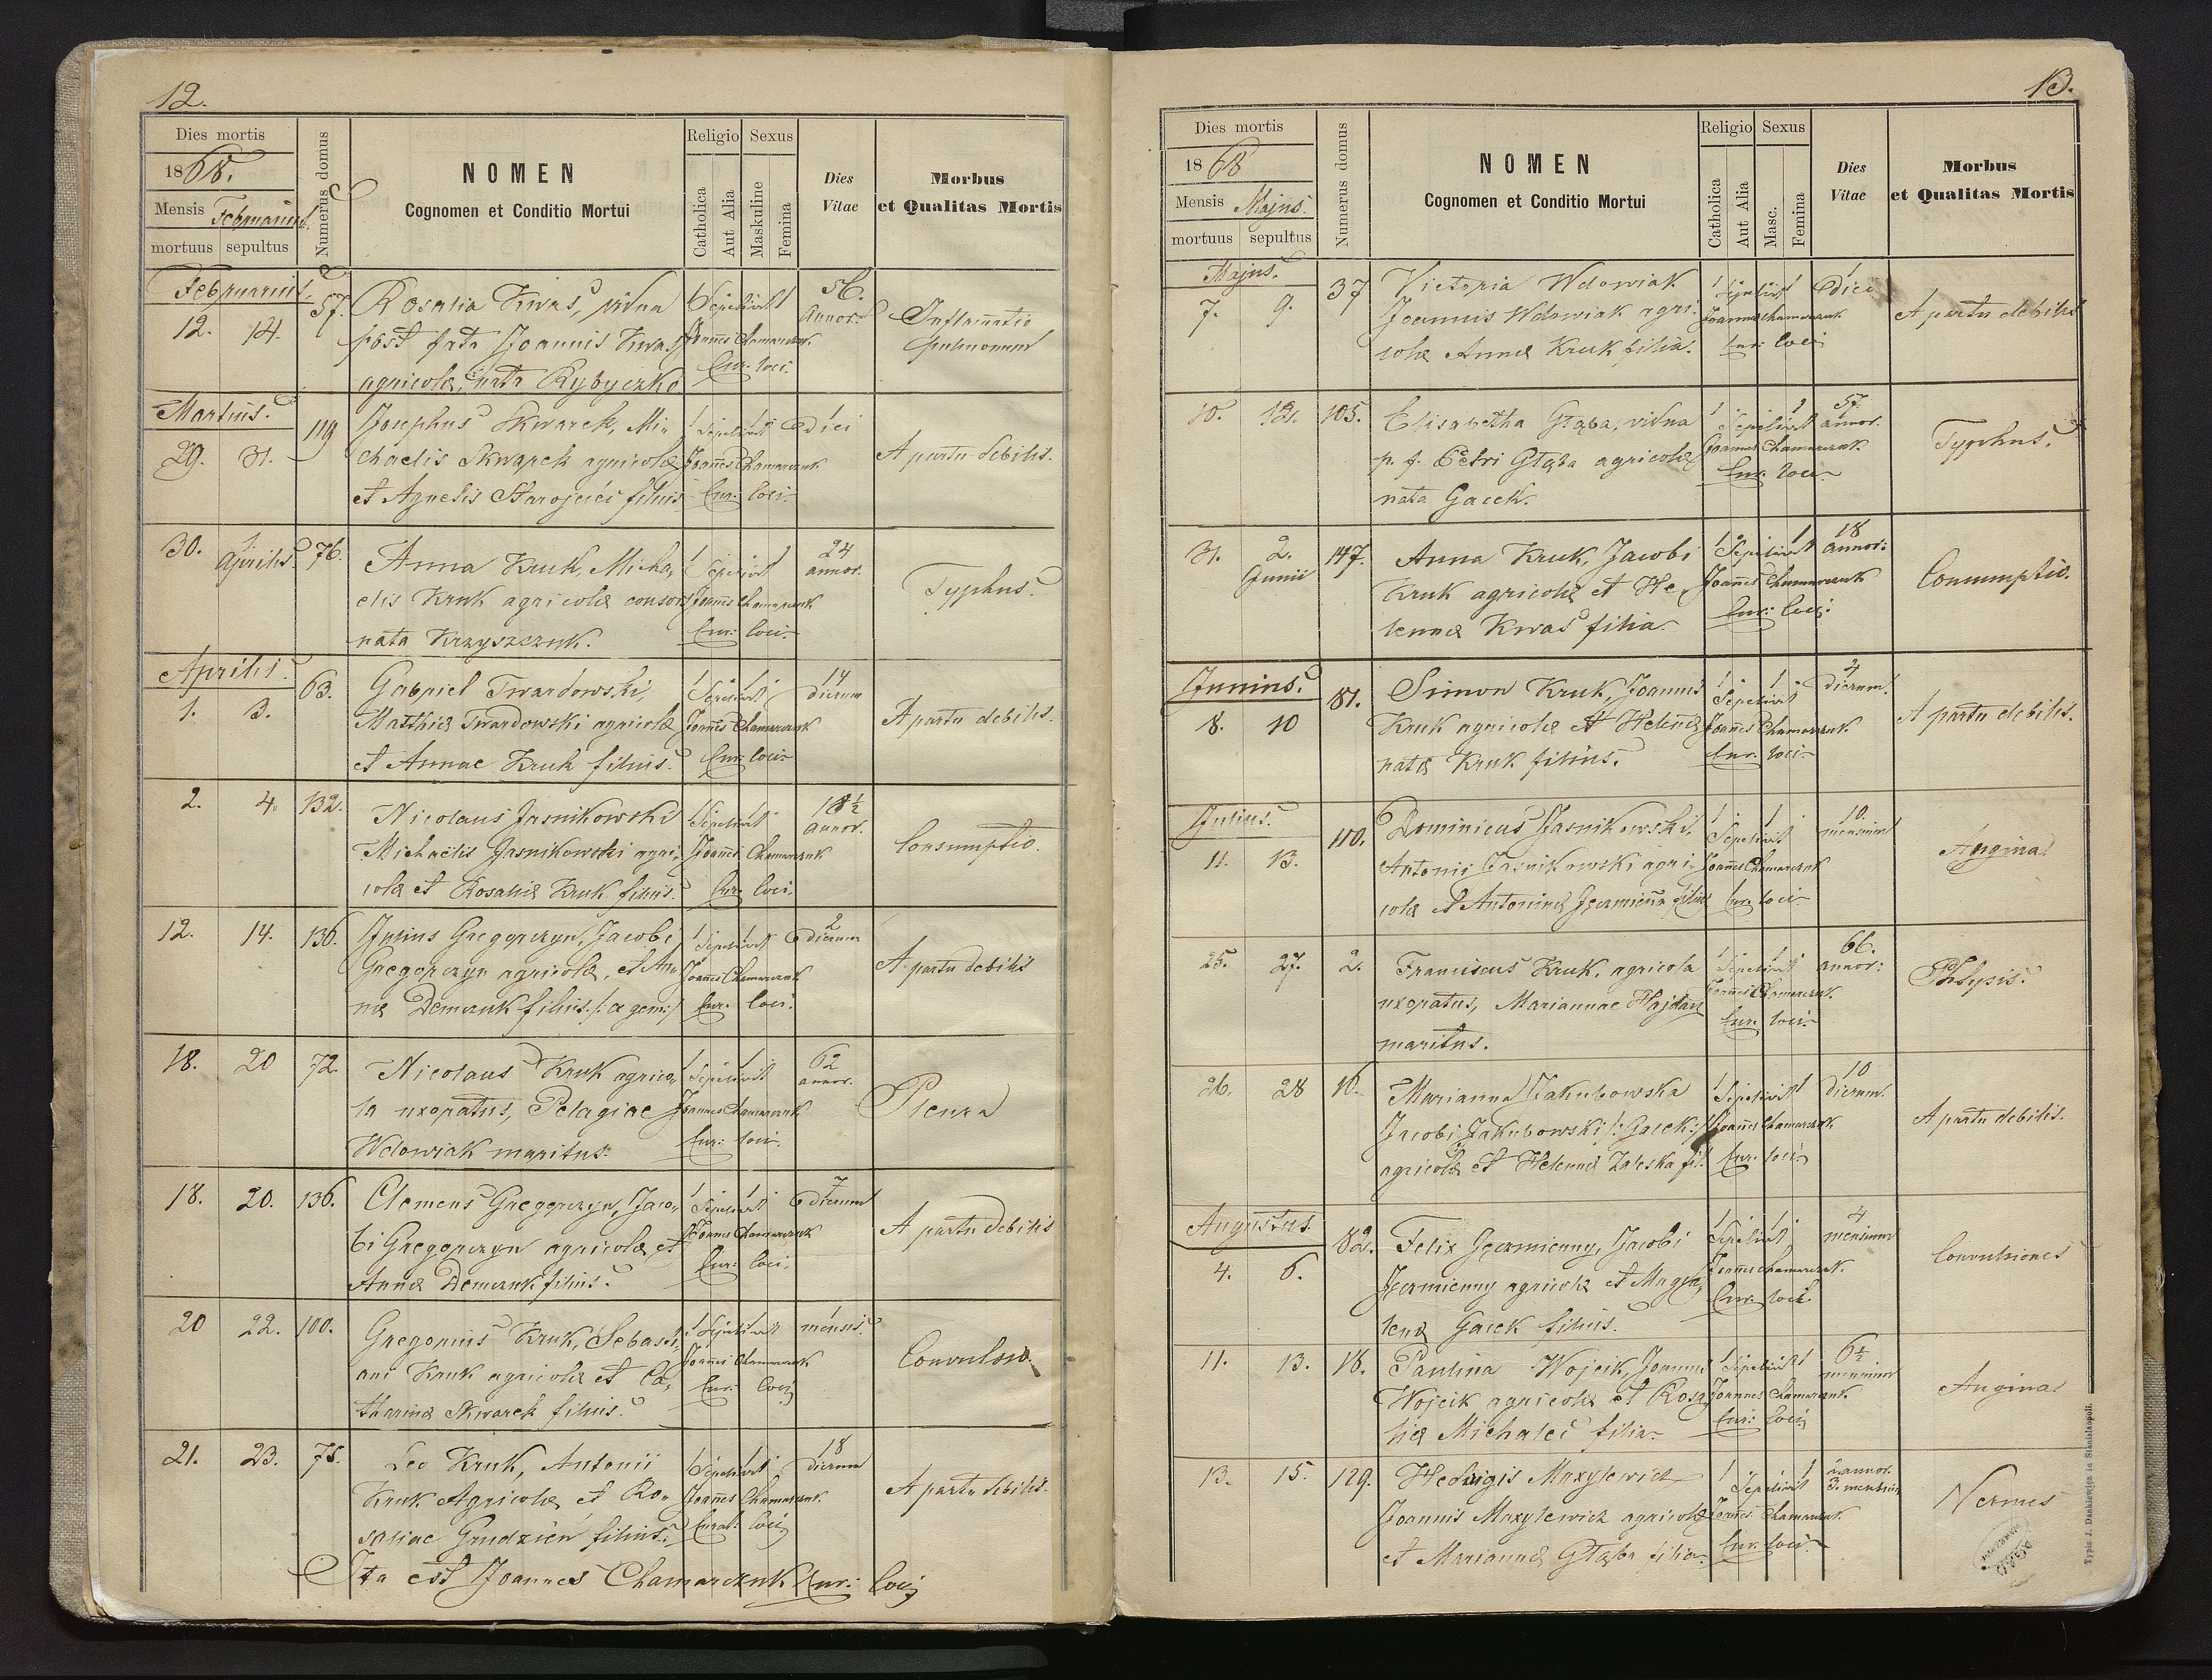 12.
Dies mortis
1868.
Mensis Februarius.
mortuus sepultus
Numerus domus
NOMEN
Cognomen et Conditio Mortui
Religio
Catholica
Aut Alia
Sexus
Maskuline
Femina
Dies
Vitae
Morbus
et Qualitas Mortis
Februarius.
12. 14. 57. Rosalia Kwas, vidua
post fata Joannis Kwas
agricolæ, nata Rybyczko
Sepelivit
Joannes Chamarczuk
Cur. loci.
56.
Annor.
Inflamatio
pulmonum
Martius.
29. 31. 119 Josephus Skwarek, Mi-
chaelis Skwarek agricolæ
et Agnetis Starojeici filius
Sepelivit
Joannes Chamarczuk
Cur. loci
diei
A partu debilis.
30. 1. Aprilis. 76. Anna Kruk, Micha-
elis Kruk agricolæ consors
nata Krzyszczuk.
Sepelivit
Joannes Chamarczuk
Cur: loci.
24
annor.
Typhus.
Aprilis.
1. 3. 63. Gabriel Twardowski,
Matthiæ Twardowski agricolæ
et Annae Kruk filius.
Sepelivit
Joannes Chamarczuk
Cur: loci
14
dierum
A partu debilis.
2. 4. 132. Nicolaus Jasnikowski
Michaelis Jasnikowski agri-
colæ et Rosaliæ Kruk filius.
Sepelivit
Joannes Chamarczuk
Cur: loci
18½
annor.
Consumptio.
12. 14. 136. Julius Gregorczyn, Jacobi
Gregorczyn agricolæ, et An-
næ Demczuk filius. /: a gem:/
Sepelivit
Joannes Chamarczuk
Cur. loci.
2
dierum
A partu debilis
18. 20 72. Nicolaus Kruk agrico-
la uxoratus, Pelagiae
Wdowiak maritus.
Sepelivit
Joannes Chamarczuk
Cur: loci.
62
annor.
Pleura
18. 20. 136. Clemens Gregorczyn, Jaco-
bi Gregorczyn agricolæ et
Annæ Demczuk filius.
Sepelivit
Joannes Chamarczuk
Cur: loci.
7
dierum
A partu debilis
20 22. 100. Gregorius Kruk, Sebasti-
ani Kruk agricolæ et Ca-
tharinæ Skwarek filius.
Sepelivit
Joannes Chamarczuk
Cur: loci
mensis.
Convulsio.
21. 23. 75. Leo Kruk, Antonii
Kruk Agricolæ et Ro-
saliae Grudzień filius.
Sepelivit
Joannes Chamarczuk
Curat: loci
18
dierum
A partu debilis.
Ita est Joannes Chamarczuk Cur: loci
13.
Dies mortis
1868
Mensis Majus.
mortuus sepultus
Numerus domus
NOMEN
Cognomen et Conditio Mortui
Religio
Catholica
Aut Alia
Sexus
Masc.
Femina
Dies
Vitae
Morbus
et Qualitas Mortis
Majus.
7. 9. 37 Victoria Wdowiak
Joannis Wdowiak agri-
colæ Annæ Kruk filia.
Sepelivit
Joannes Chamarczuk
Cur: loci
diei
A partu debilis
10. 12. 105. Elisabetha Głąba, vidua
p. f. Petri Głąba agricolæ
nata Gacek.
Sepelivit
Joannes Chamarczuk
Cur. loci
57
annor.
Typhus.
31. 2. Junii 147. Anna Kruk, Jacobi
Kruk agricolæ et He-
lennæ Kwas filia.
Sepelivit
Joannes Chamarczuk
Cur: loci
18
annor:
Consumptio.
Junius.
8. 10 81. Simon Kruk, Joannis
Kruk agricolæ et Helenæ
natæ Kruk filius.
Sepelivit
Joannes Chamarczuk
Cur. loci
4
dierum.
A partu debilis.
Julius.
11. 13. 110. Dominicus Jasnikowski,
Antonii Jasnikowski agri-
colæ et Antoninæ Jęczmienna filius
Sepelivit
Joannes Chamarczuk
Cur. loci
10.
mensium
Angina
25. 27. 2. Franciscus Kruk, agricola
uxoratus, Mariannae Hajdasz
maritus.
Sepelivit
Joannes Chamarczuk.
Cur. loci
66.
annor:
Phtysis.
26. 28 10. Marianna Jakubowska
Jacobi Jakubowski /: Gacek:/
agricolæ et Helennæ Zaleska fil.
Sepelivit
Joannes Chamarczuk.
Cur. loci
10
dierum.
A partu debilis.
Augustus.
4. 6. 82. Felix Jęczmienny, Jacobi
Jęczmienny agricolæ et Magda-
lenæ Gacek filius.
Sepelivit
Joannes Chamarczuk.
Cur. loci.
4
mensium
Convulsiones
11. 13. 18. Paulina Wojcik, Joannis
Wojcik agricolæ et Rosa-
liæ Michalec filia
Sepelivit
Joannes Chamarczuk.
Cur: loci
6½
mensium
Angina
13. 15. 129. Hedvigis Maxylewicz
Joannis Maxylewicz agricolæ
et Mariannæ Głąba filia
Sepelivit
Joannes Chamarczuk.
Cur. loci
2 annor.
3. mensium
Vermes
Typis J. Dankiewicza in Stanislaopoli.